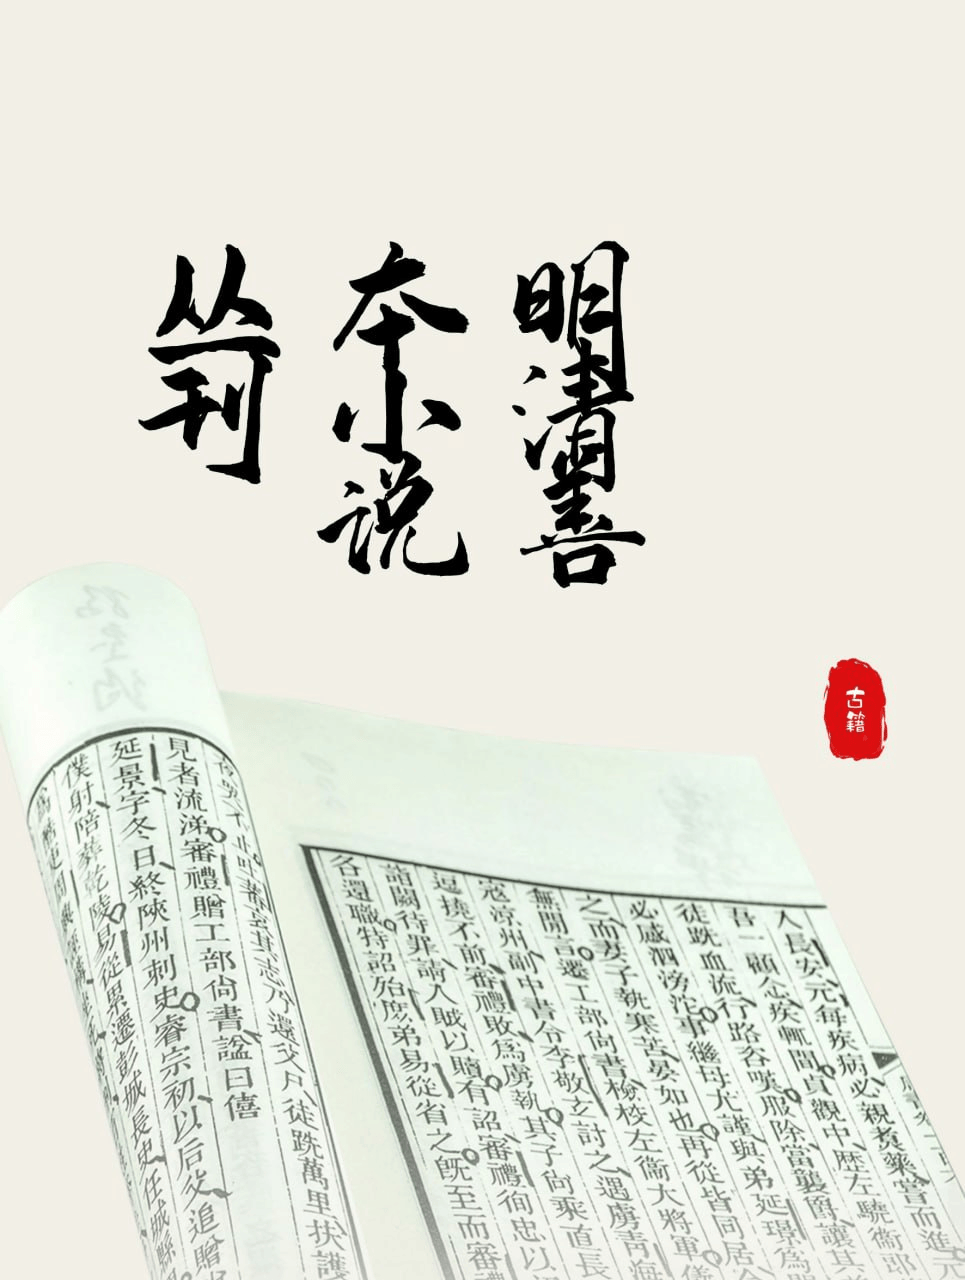 明清善
本小说
丛刊
古籍
人長安元每疾病必親煑藥嘗而進元
吾一顧念疾輒間貞觀中歷左驍衞郎
徒跣血流行路咨嘆服除當襲爵讓其
必慼泗滂沱事繼母尤謹與弟延璟為
之而妻子執寒苦晏如也再從皆同居合
無閒言遷工部尙書檢校左衞大將軍儀
寇涼州副中書令李敬玄討之遇虜青海
逗撓不前審禮敗爲虜執其子尙乘直長
詣闕待罪請入賊以贖有詔審禮徇忠以
各還職特詔殆庶弟易從省之旣至而審
止吐蕃哀其志乃還父尸徒跣萬里扶護
見者流涕審禮贈工部尙書諡曰僖
延景字冬日終陝州刺史睿宗初以后父追贈
僕射陪葬乾陵易從累遷彭城長史任城縣